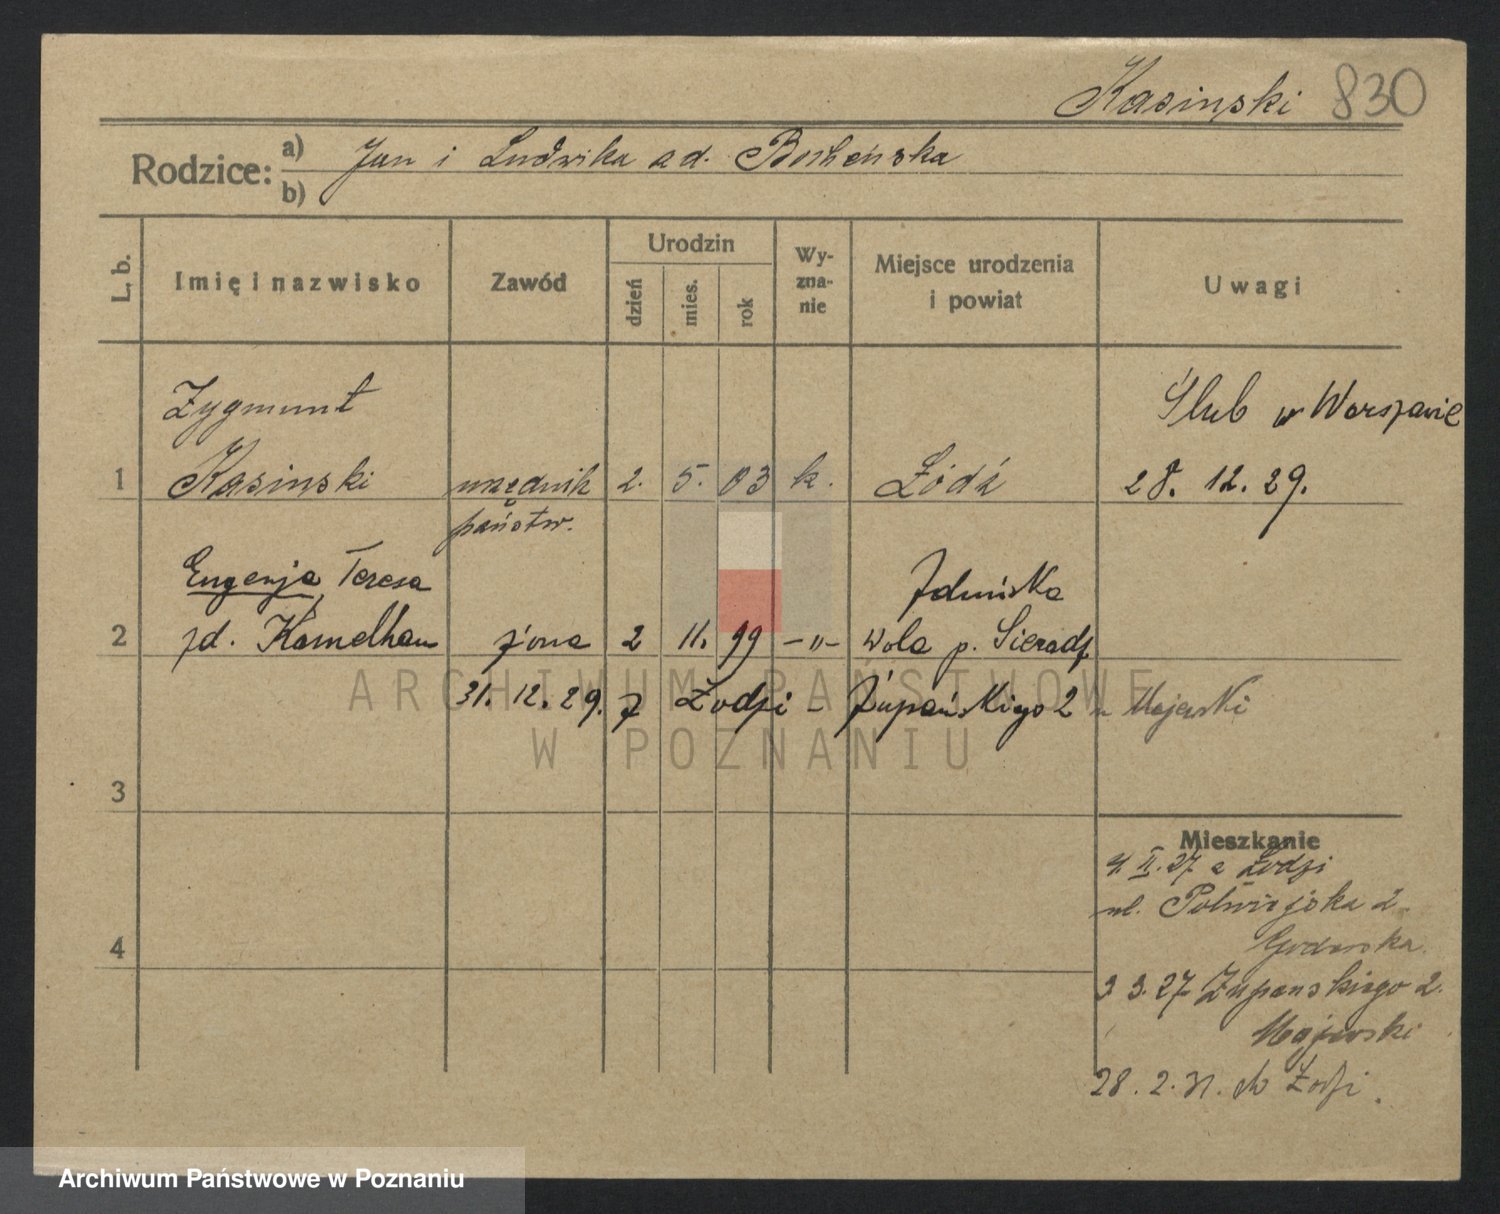 Kasinski 830
Rodzice: a) Jan i Ludwika
b)
L. b.
Imię i nazwisko
Zawód
Urodzin
dzień
mies.
rok
Wy-
zna-
nie
Miejsce urodzenia
i powiat
Uwagi
Zygmunt
Ślub w Warszawie
1 Kasinski urzędnik 2. 5. 03 k. Łódź 28. 12. 29.
państw.
Eugenja Teresa
Zduńska
2 zd. żona 2 11. 99 -"- Wola p. Sieradz
31. 12. 29. z Łodzi - Żupańskiego 2 u Majewski
3
Mieszkanie
4. II. 27 z Łodzi
ul. Półwiejska 2
4
3 3. 27 Żupanskiego 2.
Majewski
28. 2. 31. do Łodzi.
ARCHIWUM PAŃSTWOWE
W POZNANIU
Archiwum Państwowe w Poznaniu